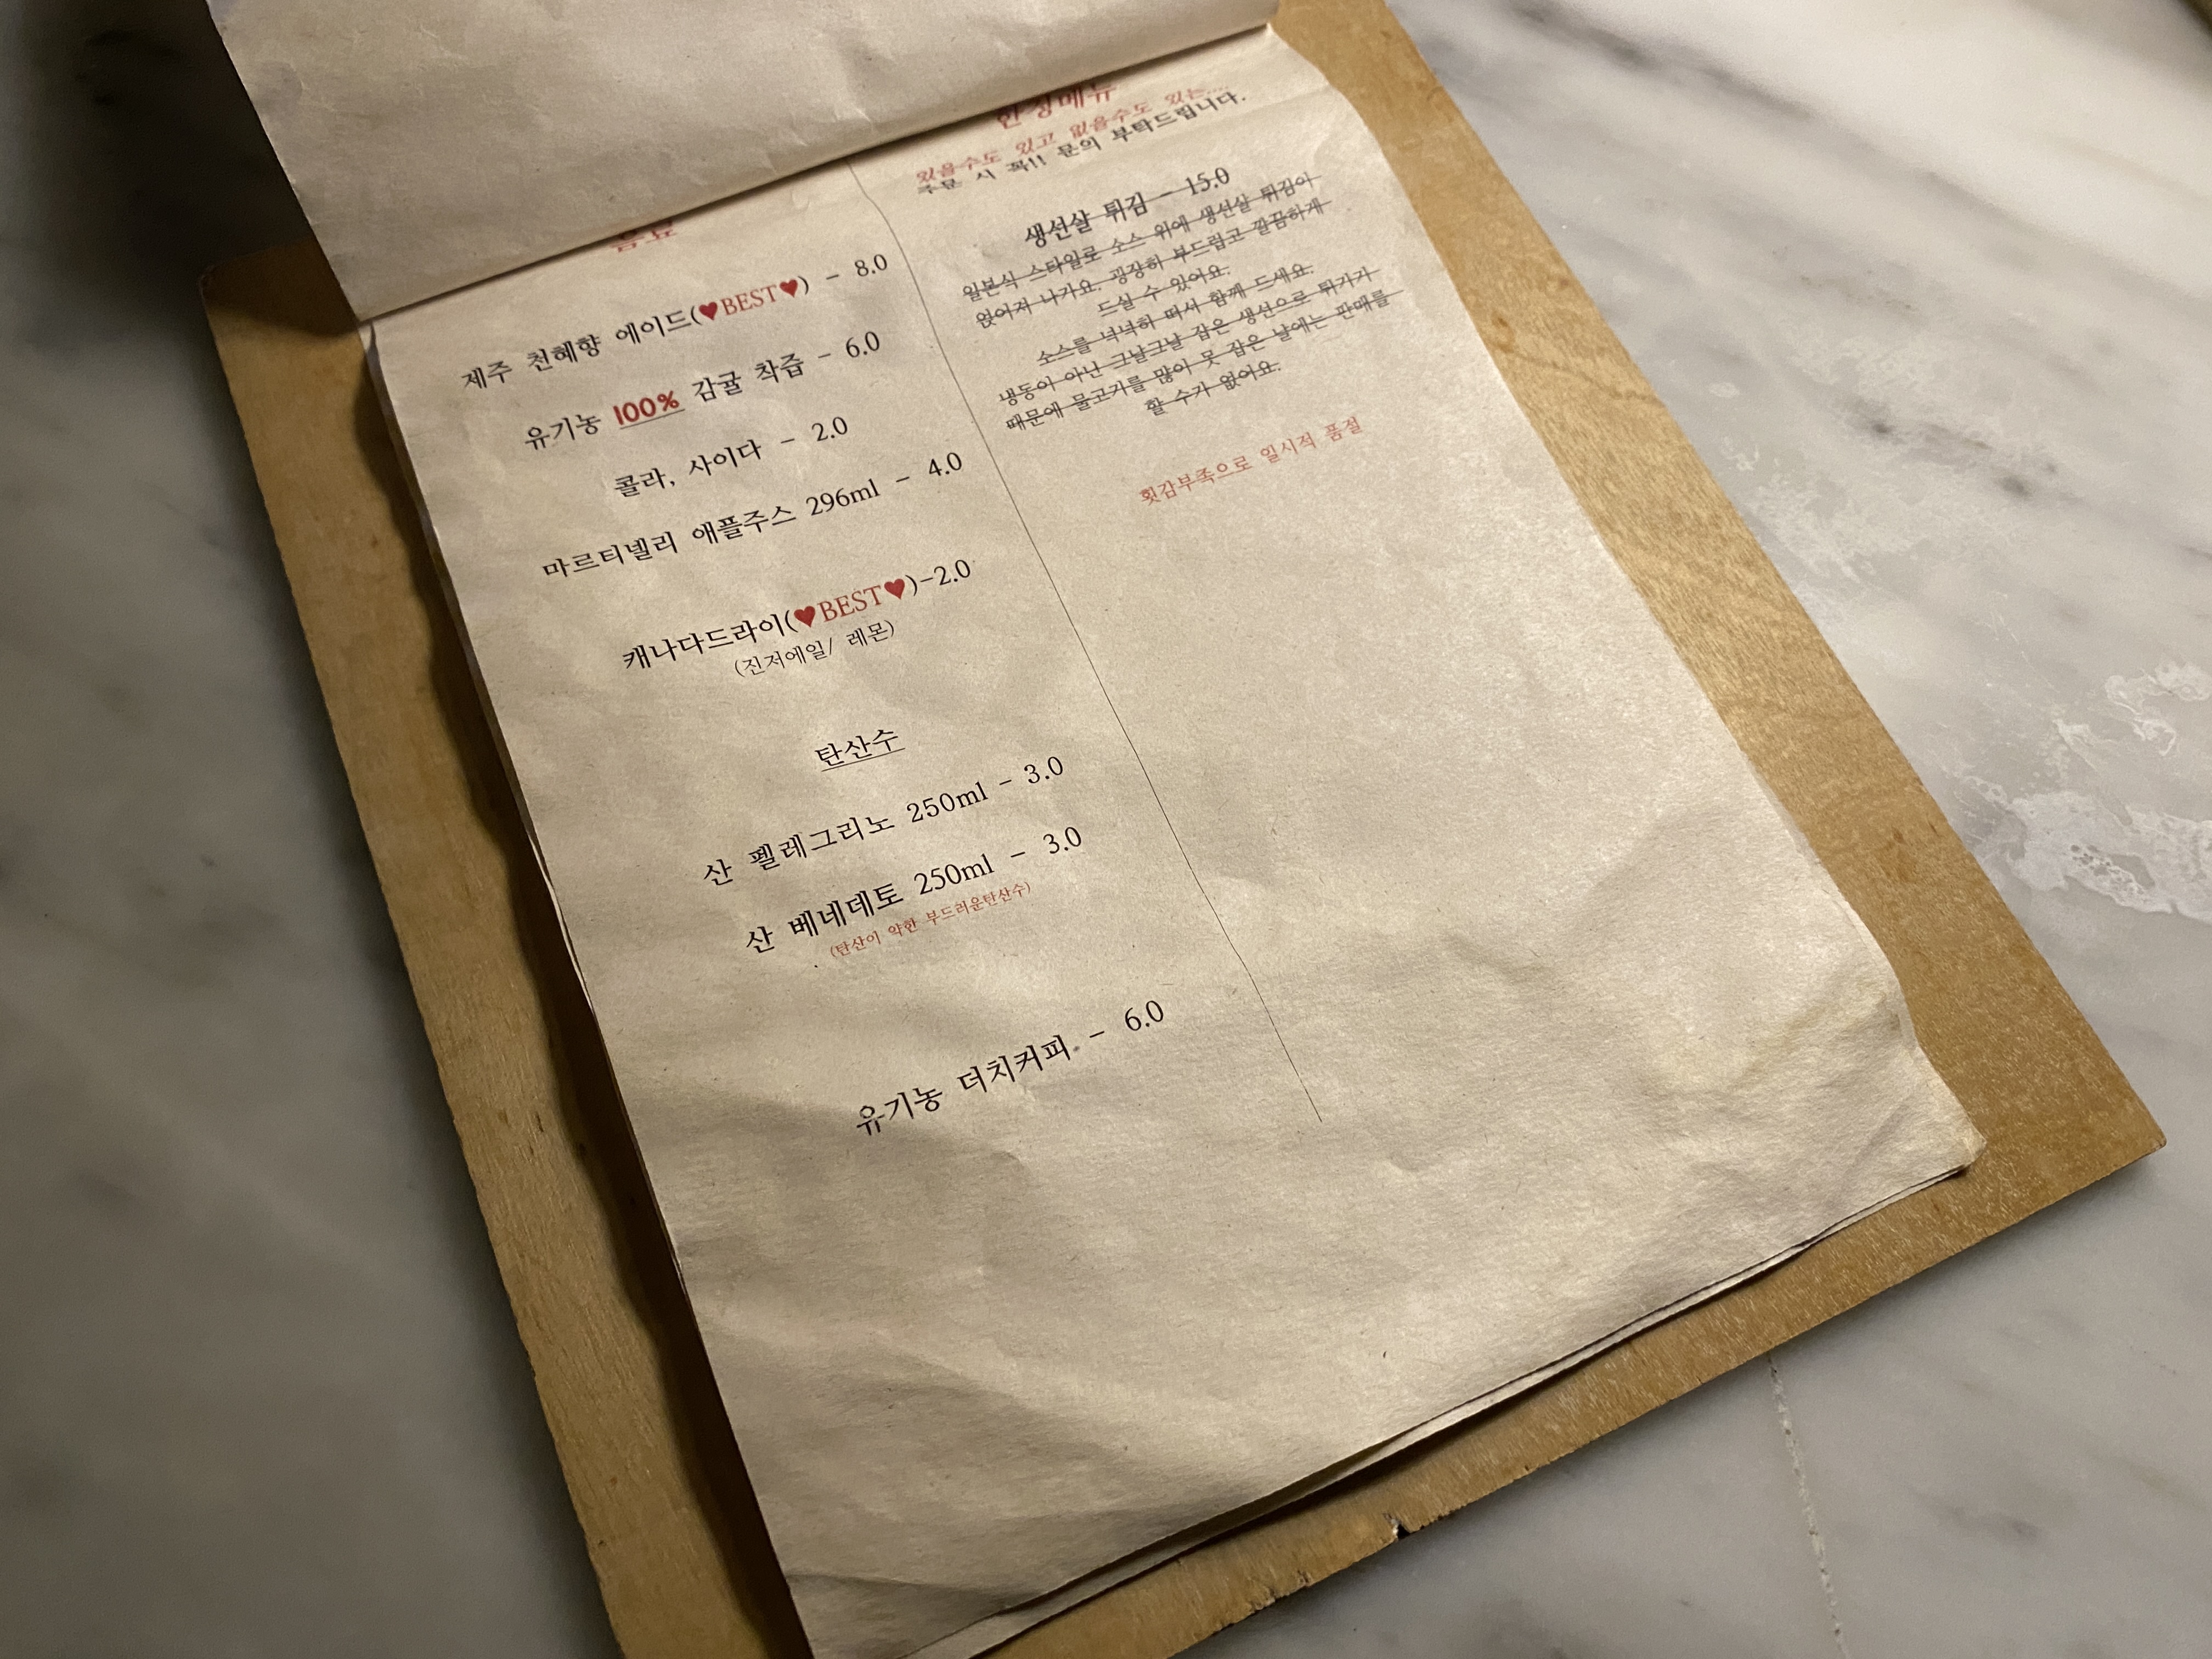 음료
제주 천혜향 에이드(♥BEST♥) - 8.0
유기농 100% 감귤 착즙 - 6.0
콜라, 사이다 - 2.0
마르티넬리 애플주스 296ml - 4.0
캐나다드라이(♥BEST♥)-2.0
(진저에일/ 레몬)
탄산수
산 펠레그리노 250ml - 3.0
산 베네데토 250ml - 3.0
(탄산이 약한 부드러운탄산수)
유기농 더치커피 - 6.0
한정메뉴
있을수도 있고 없을수도 있는...
주문 시 꼭!! 문의 부탁드립니다.
생선살 튀김 - 15.0
일본식 스타일로 소스 위에 생선살 튀김이
얹어져 나가요. 굉장히 부드럽고 깔끔하게
드실 수 있어요.
소스를 넉넉히 떠서 함께 드세요.
냉동이 아닌 그날그날 잡은 생선으로 튀기기
때문에 물고기를 많이 못 잡은 날에는 판매를
할 수가 없어요.
횟감부족으로 일시적 품절